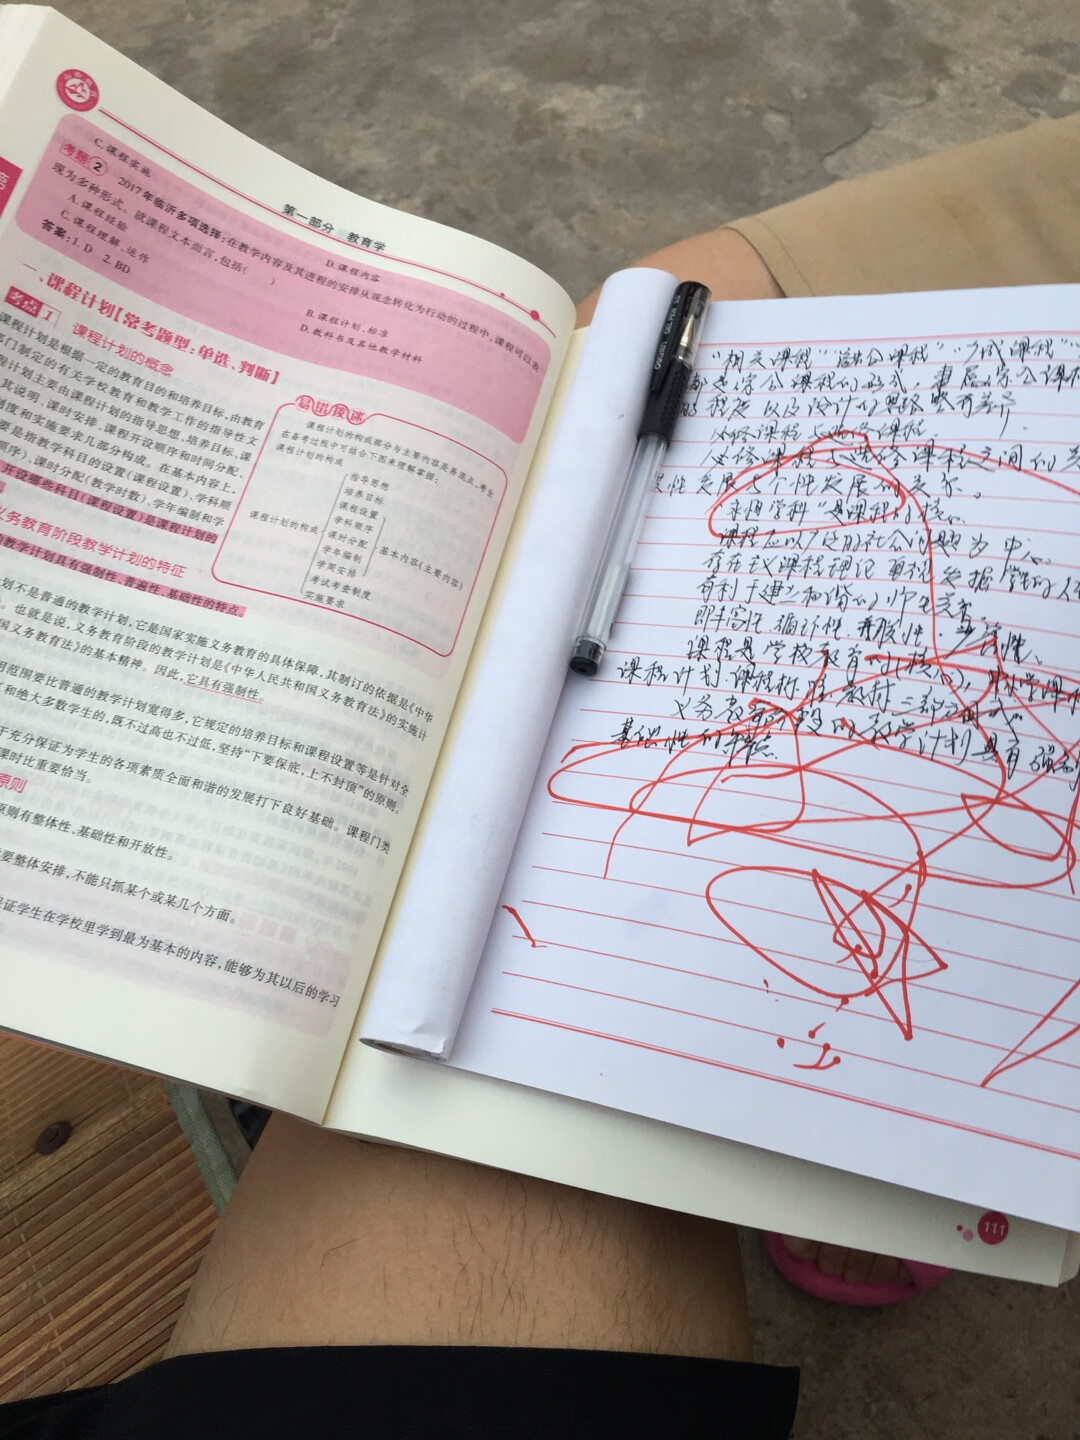 第一部分 教育学
C.课程实施
D.课程内容
考题2 2017年临沂多项选择:在教学内容及其进程的安排从观念转化为行动的过程中,课程可以表
现为多种形式。就课程文本而言,包括( )
A.课程经验
B.课程计划、标准
C.课程理解、运作
D.教科书及其他教学材料
答案:1.D 2.BD
一、课程计划【常考题型:单选、判断】
考点1 课程计划的概念
课程计划是根据一定的教育目的和培养目标,由教育
部门制定的有关学校教育和教学工作的指导性文
程计划主要由课程计划的指导思想、培养目标、课
其说明、课时安排、课程开设顺序和时间分配、
制度和实施要求几部分构成。在基本内容上,
要是指教学科目的设置(课程设置)、学科顺
顺序)、课时分配(教学时数)、学年编制和学
开设哪些科目(课程设置)是课程计划的
易错接迷
课程计划的构成部分与主要内容是易混点,考生
在备考过程中可结合下图来理解掌握:
课程计划的构成
指导思想
培养目标
课程设置
学科顺序
课程计划的构成
课时分配
基本内容(主要内容)
学年编制
学周安排
考试考查制度
实施要求
义务教育阶段教学计划的特征
的教学计划具有强制性、普遍性、基础性的特点。
划不是普通的教学计划,它是国家实施义务教育的具体保障,其制订的依据是《中华
。也就是说,义务教育阶段的教学计划是《中华人民共和国义务教育法》的实施计
国义务教育法》的基本精神。因此,它具有强制性。
用范围要比普通的教学计划宽得多,它规定的培养目标和课程设置等是针对全
和绝大多数学生的,既不过高也不过低,坚持“下要保底,上不封顶”的原则。
于充分保证为学生的各项素质全面和谐的发展打下良好基础。课程门类
课时比重要恰当。
原则
原则有整体性、基础性和开放性。
要整体安排,不能只抓某个或某几个方面。
保证学生在学校里学到最为基本的内容,能够为其以后的学习
111
“相关课程”“融合课程”“广域课程”
都是综合课程的形式,
程度以及设计的思路略有差异
必修课程与选修课程
必修课程与选修课程之间的关
性发展与个性发展的关系。
学科”是课程的核心
课程应以广泛的社会问题为中心
存在主义课程理论
有利于建立和谐的师生关系
即丰富性、循环性、关联性、严密性。
课程是学校教育的核心,中小学课
课程计划、课程标准、教材三部分组成
义务教育阶段的教学计划具有强制
基础性的特点